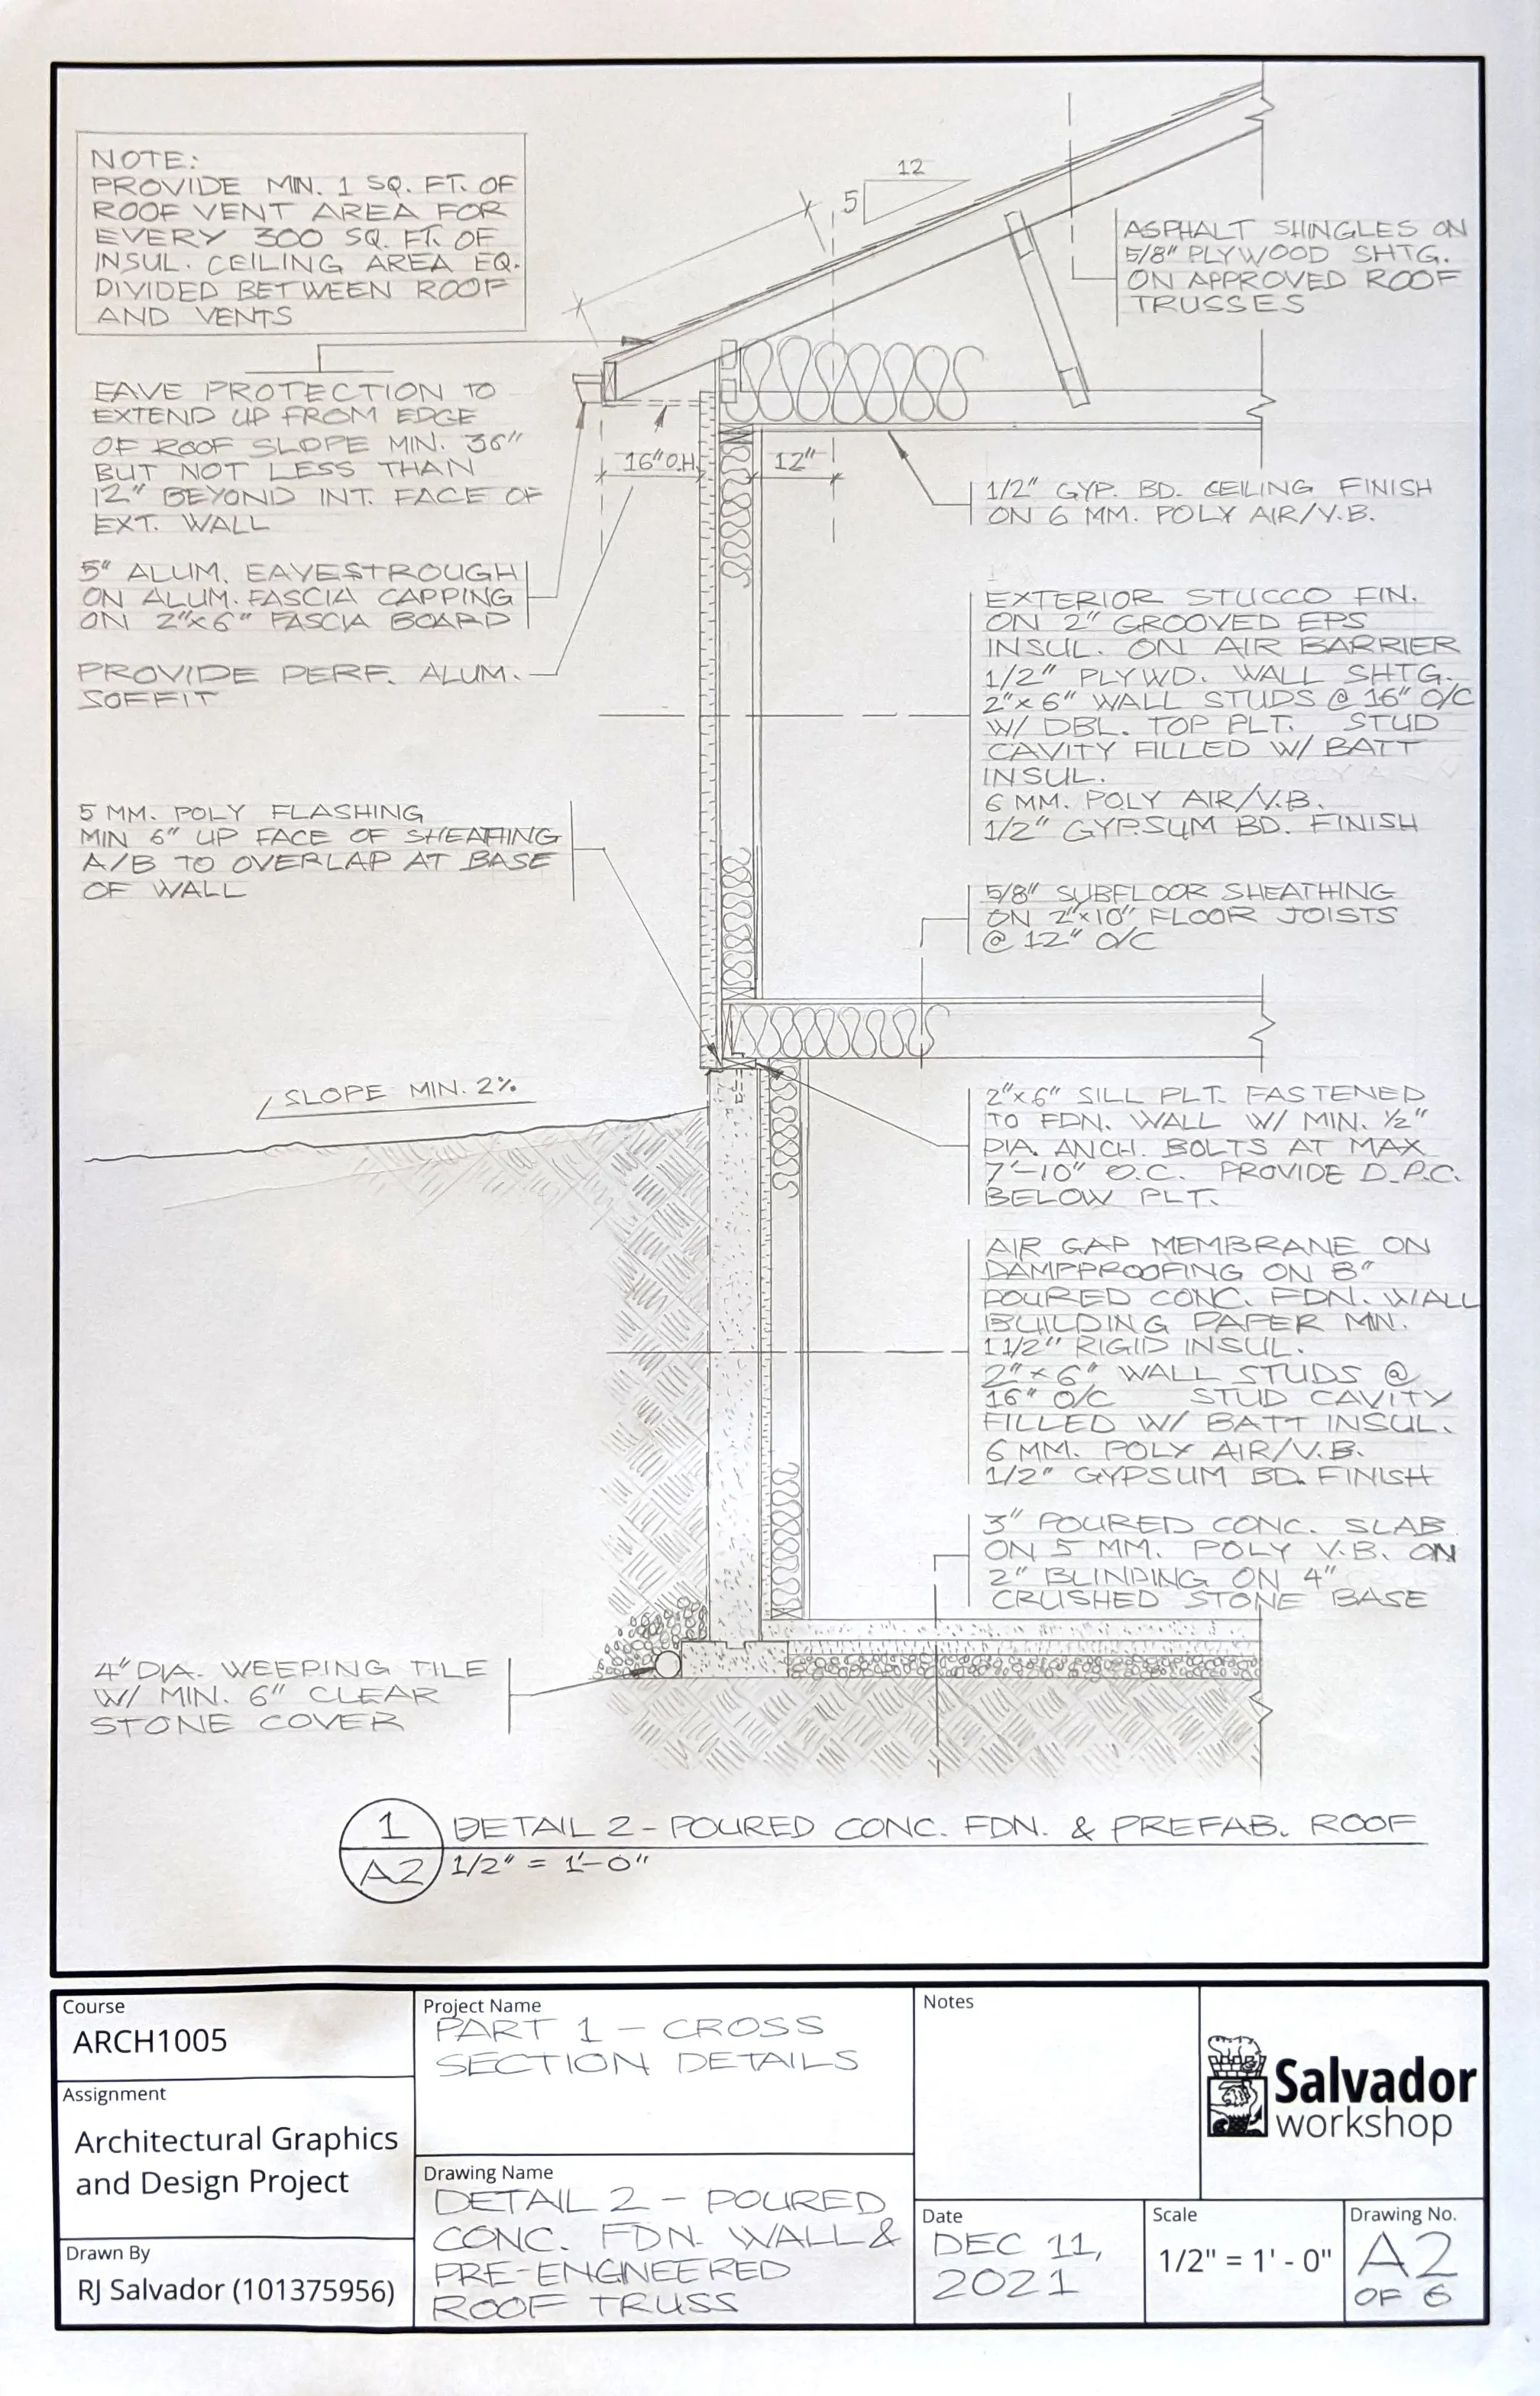 NOTE:
PROVIDE MIN. 1 SQ. FT. OF
ROOF VENT AREA FOR
EVERY 300 SQ. FT. OF
INSUL. CEILING AREA EQ.
DIVIDED BETWEEN ROOF
AND VENTS
12
5
ASPHALT SHINGLES ON
5/8" PLYWOOD SHTG.
ON APPROVED ROOF
TRUSSES
EAVE PROTECTION TO
EXTEND UP FROM EDGE
OF ROOF SLOPE MIN. 36"
BUT NOT LESS THAN
12" BEYOND INT. FACE OF
EXT. WALL
16" O.H.
12"
1/2" GYP. BD. CEILING FINISH
ON 6 MM. POLY AIR/V.B.
5" ALUM. EAVESTROUGH
ON ALUM. FASCIA CAPPING
ON 2"x6" FASCIA BOARD
PROVIDE PERF. ALUM.
SOFFIT
EXTERIOR STUCCO FIN.
ON 2" GROOVED EPS
INSUL. ON AIR BARRIER
1/2" PLYWD. WALL SHTG.
2"x6" WALL STUDS @ 16" O/C
W/ DBL. TOP PLT. STUD
CAVITY FILLED W/ BATT
INSUL.
6 MM. POLY AIR/V.B.
1/2" GYPSUM BD. FINISH
5 MM. POLY FLASHING
MIN 6" UP FACE OF SHEATHING
A/B TO OVERLAP AT BASE
OF WALL
5/8" SUBFLOOR SHEATHING
ON 2"x10" FLOOR JOISTS
@ 12" O/C
SLOPE MIN. 2%
2"x6" SILL PLT. FASTENED
TO FDN. WALL W/ MIN. 1/2"
DIA. ANCH. BOLTS AT MAX
7'-10" O.C. PROVIDE D.P.C.
BELOW PLT.
AIR GAP MEMBRANE ON
DAMPPROOFING ON 8"
POURED CONC. FDN. WALL
BUILDING PAPER MIN.
1 1/2" RIGID INSUL.
2"x6" WALL STUDS @
16" O/C STUD CAVITY
FILLED W/ BATT INSUL.
6 MM. POLY AIR/V.B.
1/2" GYPSUM BD. FINISH
3" POURED CONC. SLAB
ON 5 MM. POLY V.B. ON
2" BLINDING ON 4"
CRUSHED STONE BASE
4" DIA. WEEPING TILE
W/ MIN. 6" CLEAR
STONE COVER
1
A2
DETAIL 2 - POURED CONC. FDN. & PREFAB. ROOF
1/2" = 1'-0"
Course
ARCH1005
Assignment
Architectural Graphics
and Design Project
Drawn By
RJ Salvador (101375956)
Project Name
PART 1 - CROSS
SECTION DETAILS
Drawing Name
DETAIL 2 - POURED
CONC. FDN. WALL &
PRE-ENGINEERED
ROOF TRUSS
Notes
Salvador
workshop
Date
DEC 11,
2021
Scale
1/2" = 1' - 0"
Drawing No.
A2
OF 6